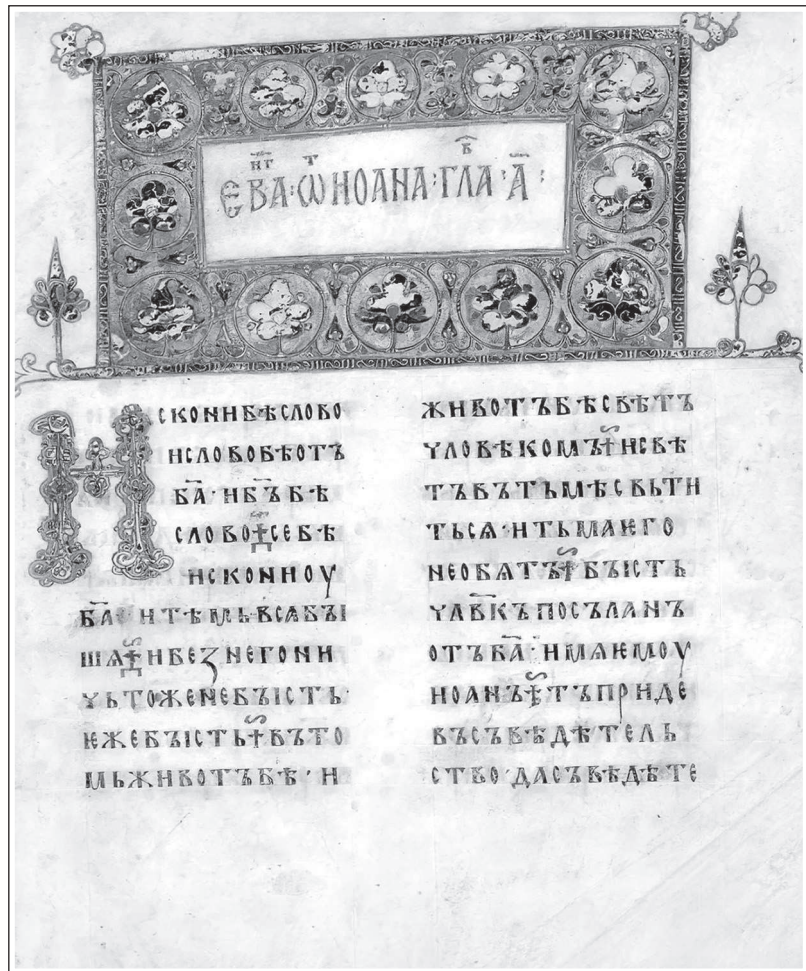 ЄВА҃НГ·Ѿ·ИОАНА·ГЛА҃В·А҃:
ИСКОНИБѢСЛОВО
ИСЛОВОБѢОТЪ
БА҃·ИБЪ҃БѢ
СЛОВО☩СЕБѢ
ИСКОНИОУ
БА҃·ИТѢМЬВСѦБЪІ
ШѦ☩ИБЕЗНЕГОНИ
ЧЬТОЖЕНЕБЪІСТЬ·
ѤЖЕБЪІСТЬ☩ВЪТО
МЬЖИВОТЪБѢ·И
ЖИВОТЪБѢСВѢТЪ
ЧЛОВѢКОМЪ☩ИСВѢ
ТЪВЪТЬМѢСВЬТИ
ТЬСѦ·ИТЬМАѤГО
НЕОБѦТЪ☩БЪІСТЬ
ЧЛВ҃КЪПОСЪЛАНЪ
ОТЪБА҃·ИМѦѤМОУ
ИОАНЪ☩ТЪПРИДЕ
ВЪСЪВѢДѢТЕЛЬ
СТВО·ДАСЪВѢДѢТЕ